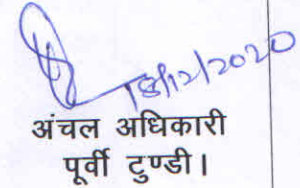 18/12/2020
अंचल अधिकारी
पूर्वी टुण्डी।